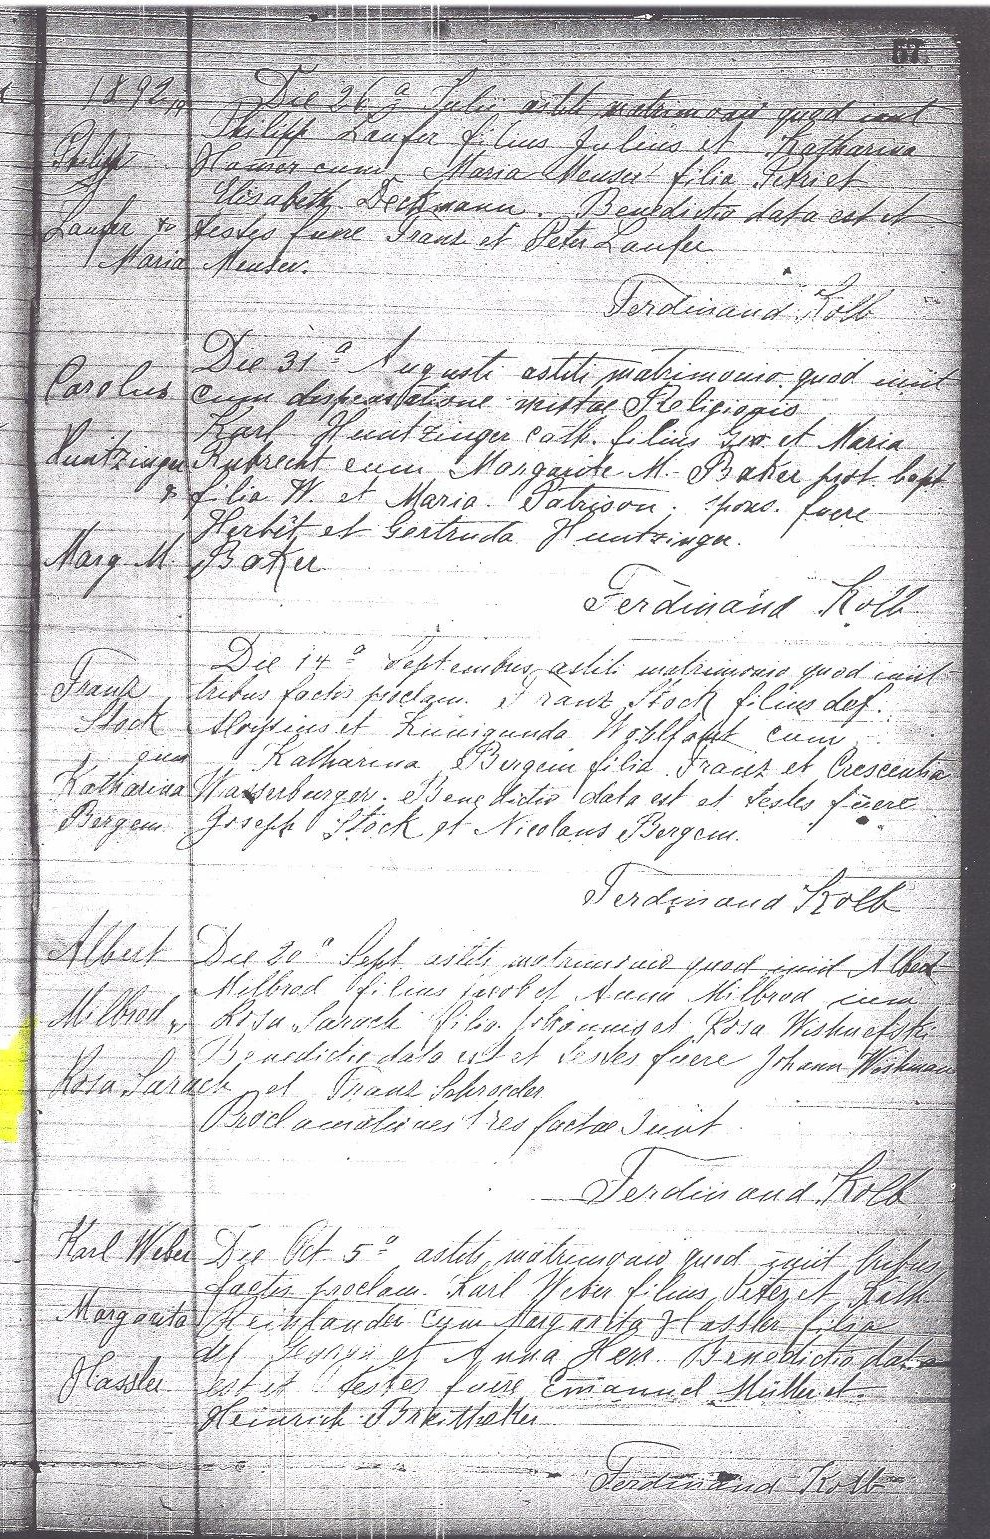 67
1892
Die 26ª Julii astiti matrimonio quod iniit
Philipp Laufer filius Julius et Katharina
Philipp
cum Maria Meuser filia Petri et
Elisabeth Deckmann. Benedictio data est et
Laufer & testes fuere Franz et Peter Laufer
Maria Meuser.
Ferdinand Kolb
Die 31ª Augusti astiti matrimonio quod iniit
Carolus cum dispensatione mixtae Religionis
Karl Huntzinger cath. filius Geo. et Maria
Huntzinger Rubrecht cum Margarite M. Baker prot. bapt
& filia W. et Maria Patrison. spons. fuere
Herbit et Gertruda Huntzinger.
Marg M. Baker
Ferdinand Kolb
Die 14ª Septembris astiti matrimonio quod iniit
Franz tribus factis proclam. Franz Stock filius def.
Stock Aloysius et Kunigunda Wohlfart cum
cum Katharina Bergem filia Franz et Crescentia
Katharina Wasserburger. Benedictio data est et testes fuere
Bergem Joseph Stock et Nicolaus Bergem.
Ferdinand Kolb
Albert Die 20ª Sept. astiti matrimonio quod iniit Albert
Milbrod filius Jacob et Anna Milbrod cum
Milbrod & Rosa Sarach filia Johannis et Rosa
Benedictio data est et testes fuere Johann
Rosa Sarach et Franz Schroeder
Proclamationes tres factae sunt.
Ferdinand Kolb
Karl Weber Die Oct 5ª astiti matrimonio quod iniit tribus
factis proclam. Karl Weber filius Peter et Kath
Margarita cum Margarita Hassler filia
def Georgii et Anna Herr. Benedictio data
Hassler est et testes fuere Emanuel Müller et
Heinrich
Ferdinand Kolb